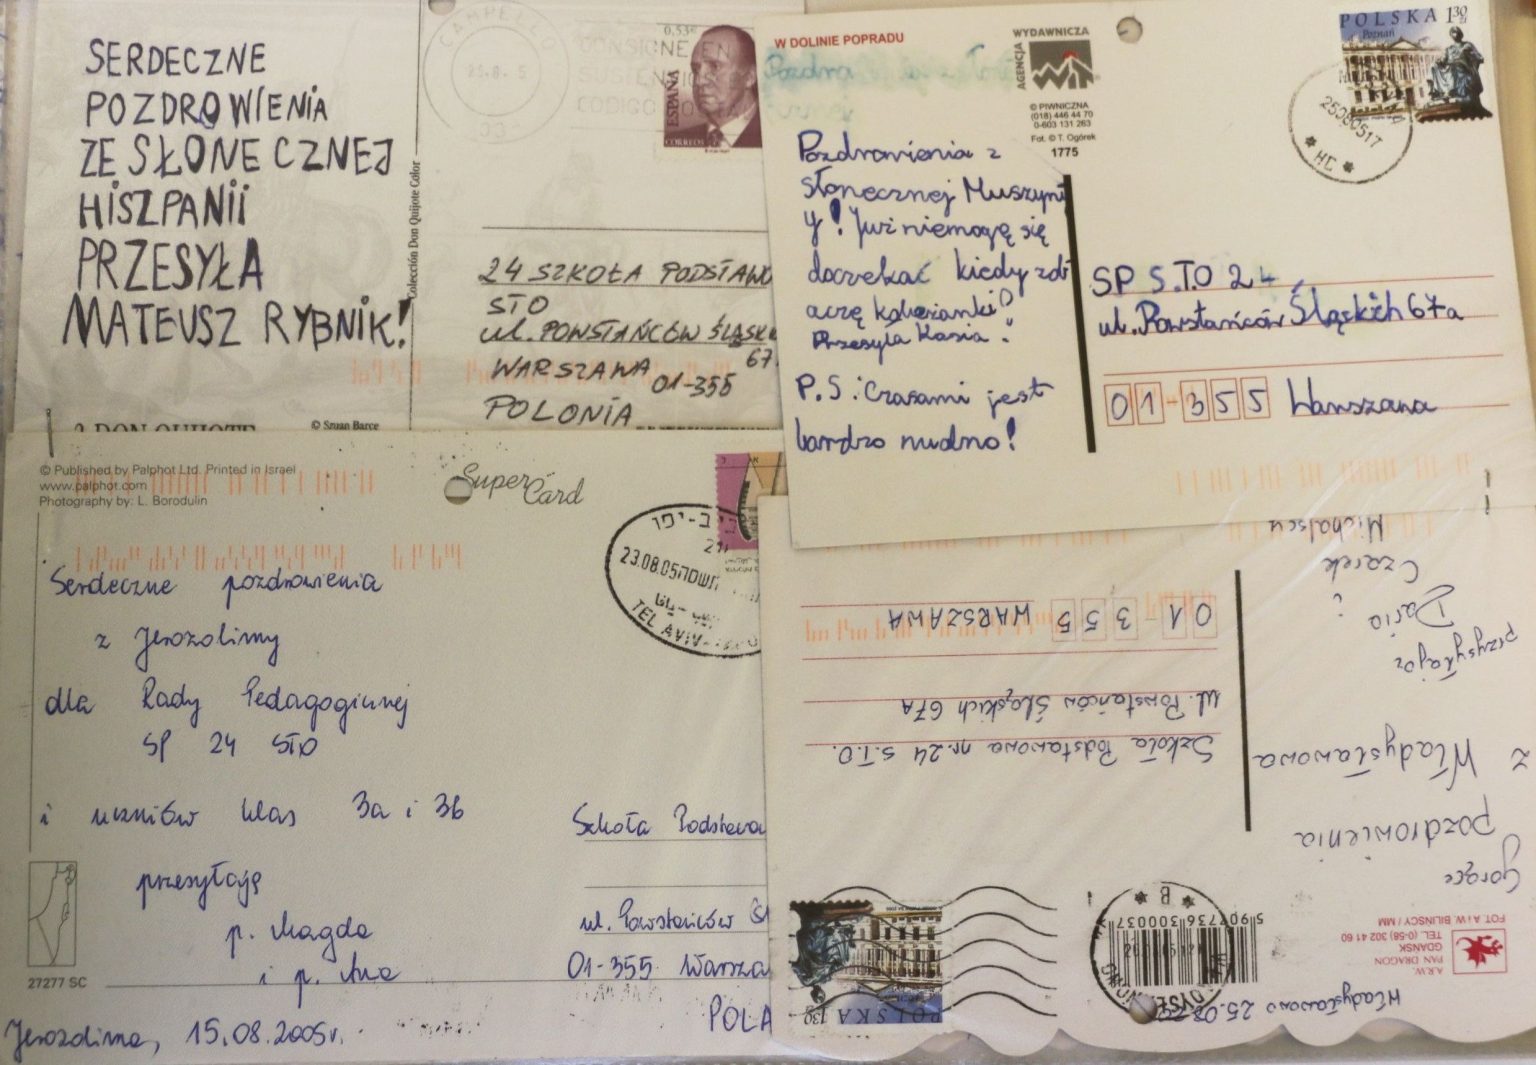 SERDECZNE
POZDROWIENIA
ZE SŁONECZNEJ
HISZPANII
PRZESYŁA
MATEUSZ RYBNIK!
Colección Don Quijote Color
CAMPELLO
25-8-5
03
CONSIGNE EN
SUS ENVIOS EL
CODIGO POSTAL
0,53€
ESPAÑA
CORREOS
24 SZKOŁA PODSTAWO
STO
ul. POWSTAŃCÓW ŚLĄSK
67
WARSZAWA 01-355
POLONIA
DON QUIJOTE
© Szuan Barce
W DOLINIE POPRADU
AGENCJA
WYDAWNICZA
© PIWNICZNA
(018) 446 44 70
0-603 131 263
Fot. © T. Ogórek
1775
POLSKA 130 zł
Poznań
25080517
Pozdrowienia z
słonecznej Muszyn
y! Już niemogę się
doczekać kiedy zob
aczę koleżanki!
Przesyła Kasia.
P.S: Czasami jest
bardzo nudno!
SP S.T.O 24
ul. Powstańców Śląskich 67a
01-355 Warszawa
© Published by Palphot Ltd. Printed in Israel
www.palphot.com
Photography by: L. Borodulin
Super Card
23.08.05
TEL AVIV-
Serdeczne pozdrowienia
z Jerozolimy
dla Rady Pedagogicznej
SP 24 STO
i uczniów klas 3a i 3b
przesyłają
p. Magda
i p. Ana
27277 SC
Jerozolima, 15.08.2005r.
Szkoła Podstawow
ul. Powstańców Śl
01-355 Warsza
POLA
Władysławowo 25.08
A.R.W.
PAN DRAGON
GDAŃSK
TEL. (0-58) 302 41 60
FOT. A i W BILIŃSCY / MM
Gorące
pozdrowienia
z Władysławowa
przysyłają
Daria i
Czarek
Michalscy
5907736300037
POLSKA 130
Szkoła Podstawowa nr. 24 S.T.O.
ul. Powstańców Śląskich 67A
01-355 WARSZAWA